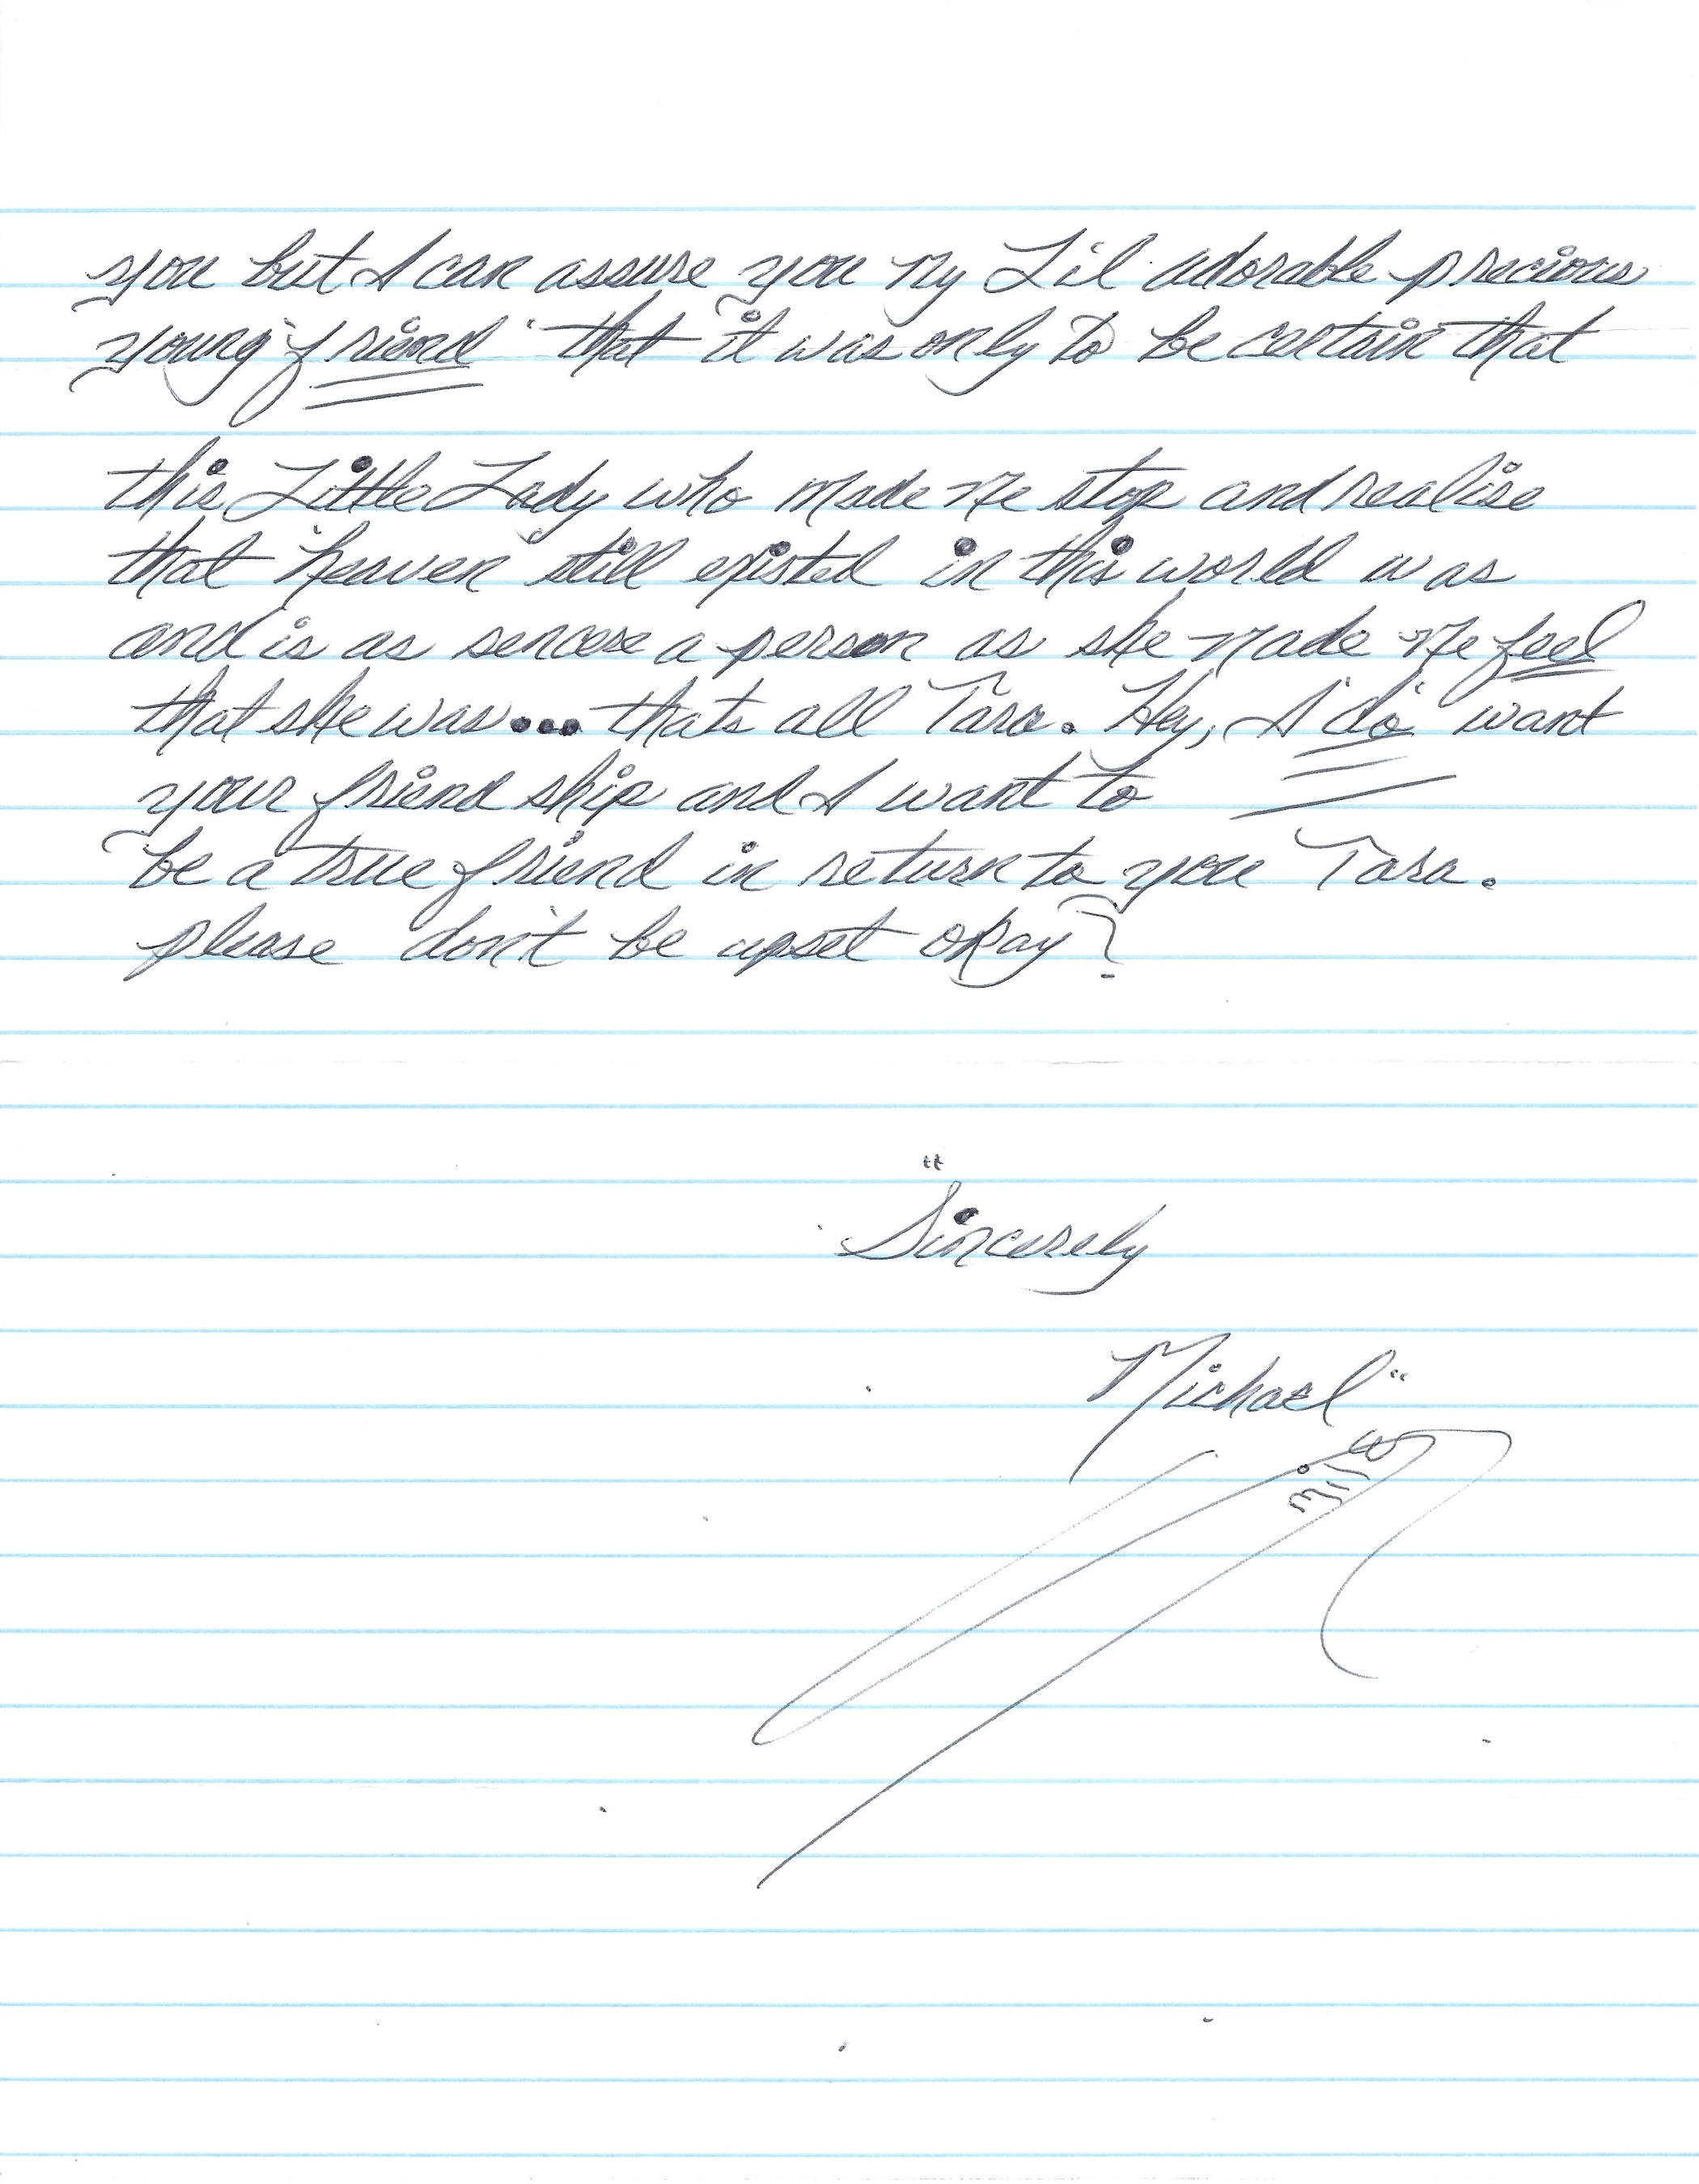 you but I can assure you my Li'l adorable precious
young "friend" that it was only to be certain that
this Little Lady who made me stop and realise
that "heaven" still existed in this world was
and is as sencere a person as she made me feel
that she was... thats all Tara. Hey, I "do" want
your friend ship and I want to
be a true friend in return to you Tara.
please don't be upset okay?
"Sincerely
Michael"
Mike